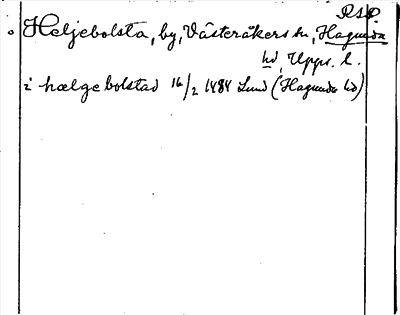 RSP.
Heljebolsta, by, Västeråkers sn, Hagunda
hd, Upps. l.
i hælgebolstad 16/2 1484 Lund (Hagunda hd)